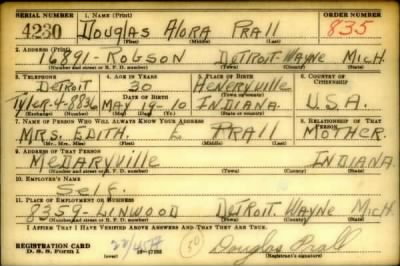 SERIAL NUMBER 1. NAME (Print) ORDER NUMBER
4230 DOUGLAS ALORA PRALL 835
(First) (Middle) (Last)
2. ADDRESS (Print)
16891-ROBSON DETROIT-WAYNE MICH.
(Number and street or R. F. D. number) (Town) (County) (State)
3. TELEPHONE 4. AGE IN YEARS 5. PLACE OF BIRTH 6. COUNTRY OF CITIZENSHIP
DETROIT 30 HENERYVILLE
DATE OF BIRTH (Town or county)
TYLER-4-8836 MAY 19-10 INDIANA U.S.A.
(Exchange) (Number) (Mo.) (Day) (Yr.) (State or country)
7. NAME OF PERSON WHO WILL ALWAYS KNOW YOUR ADDRESS 8. RELATIONSHIP OF THAT PERSON
MRS. EDITH. E PRALL MOTHER.
(Mr., Mrs., Miss) (First) (Middle) (Last)
9. ADDRESS OF THAT PERSON
MEDARYVILLE INDIANA
(Number and street or R. F. D. number) (Town) (County) (State)
10. EMPLOYER'S NAME
SELF.
11. PLACE OF EMPLOYMENT OR BUSINESS
8359 LYNWOOD DETROIT. WAYNE MICH
(Number and street or R. F. D. number) (Town) (County) (State)
I AFFIRM THAT I HAVE VERIFIED ABOVE ANSWERS AND THAT THEY ARE TRUE.
REGISTRATION CARD
D. S. S. Form 1 Douglas Prall
(Registrant's signature)